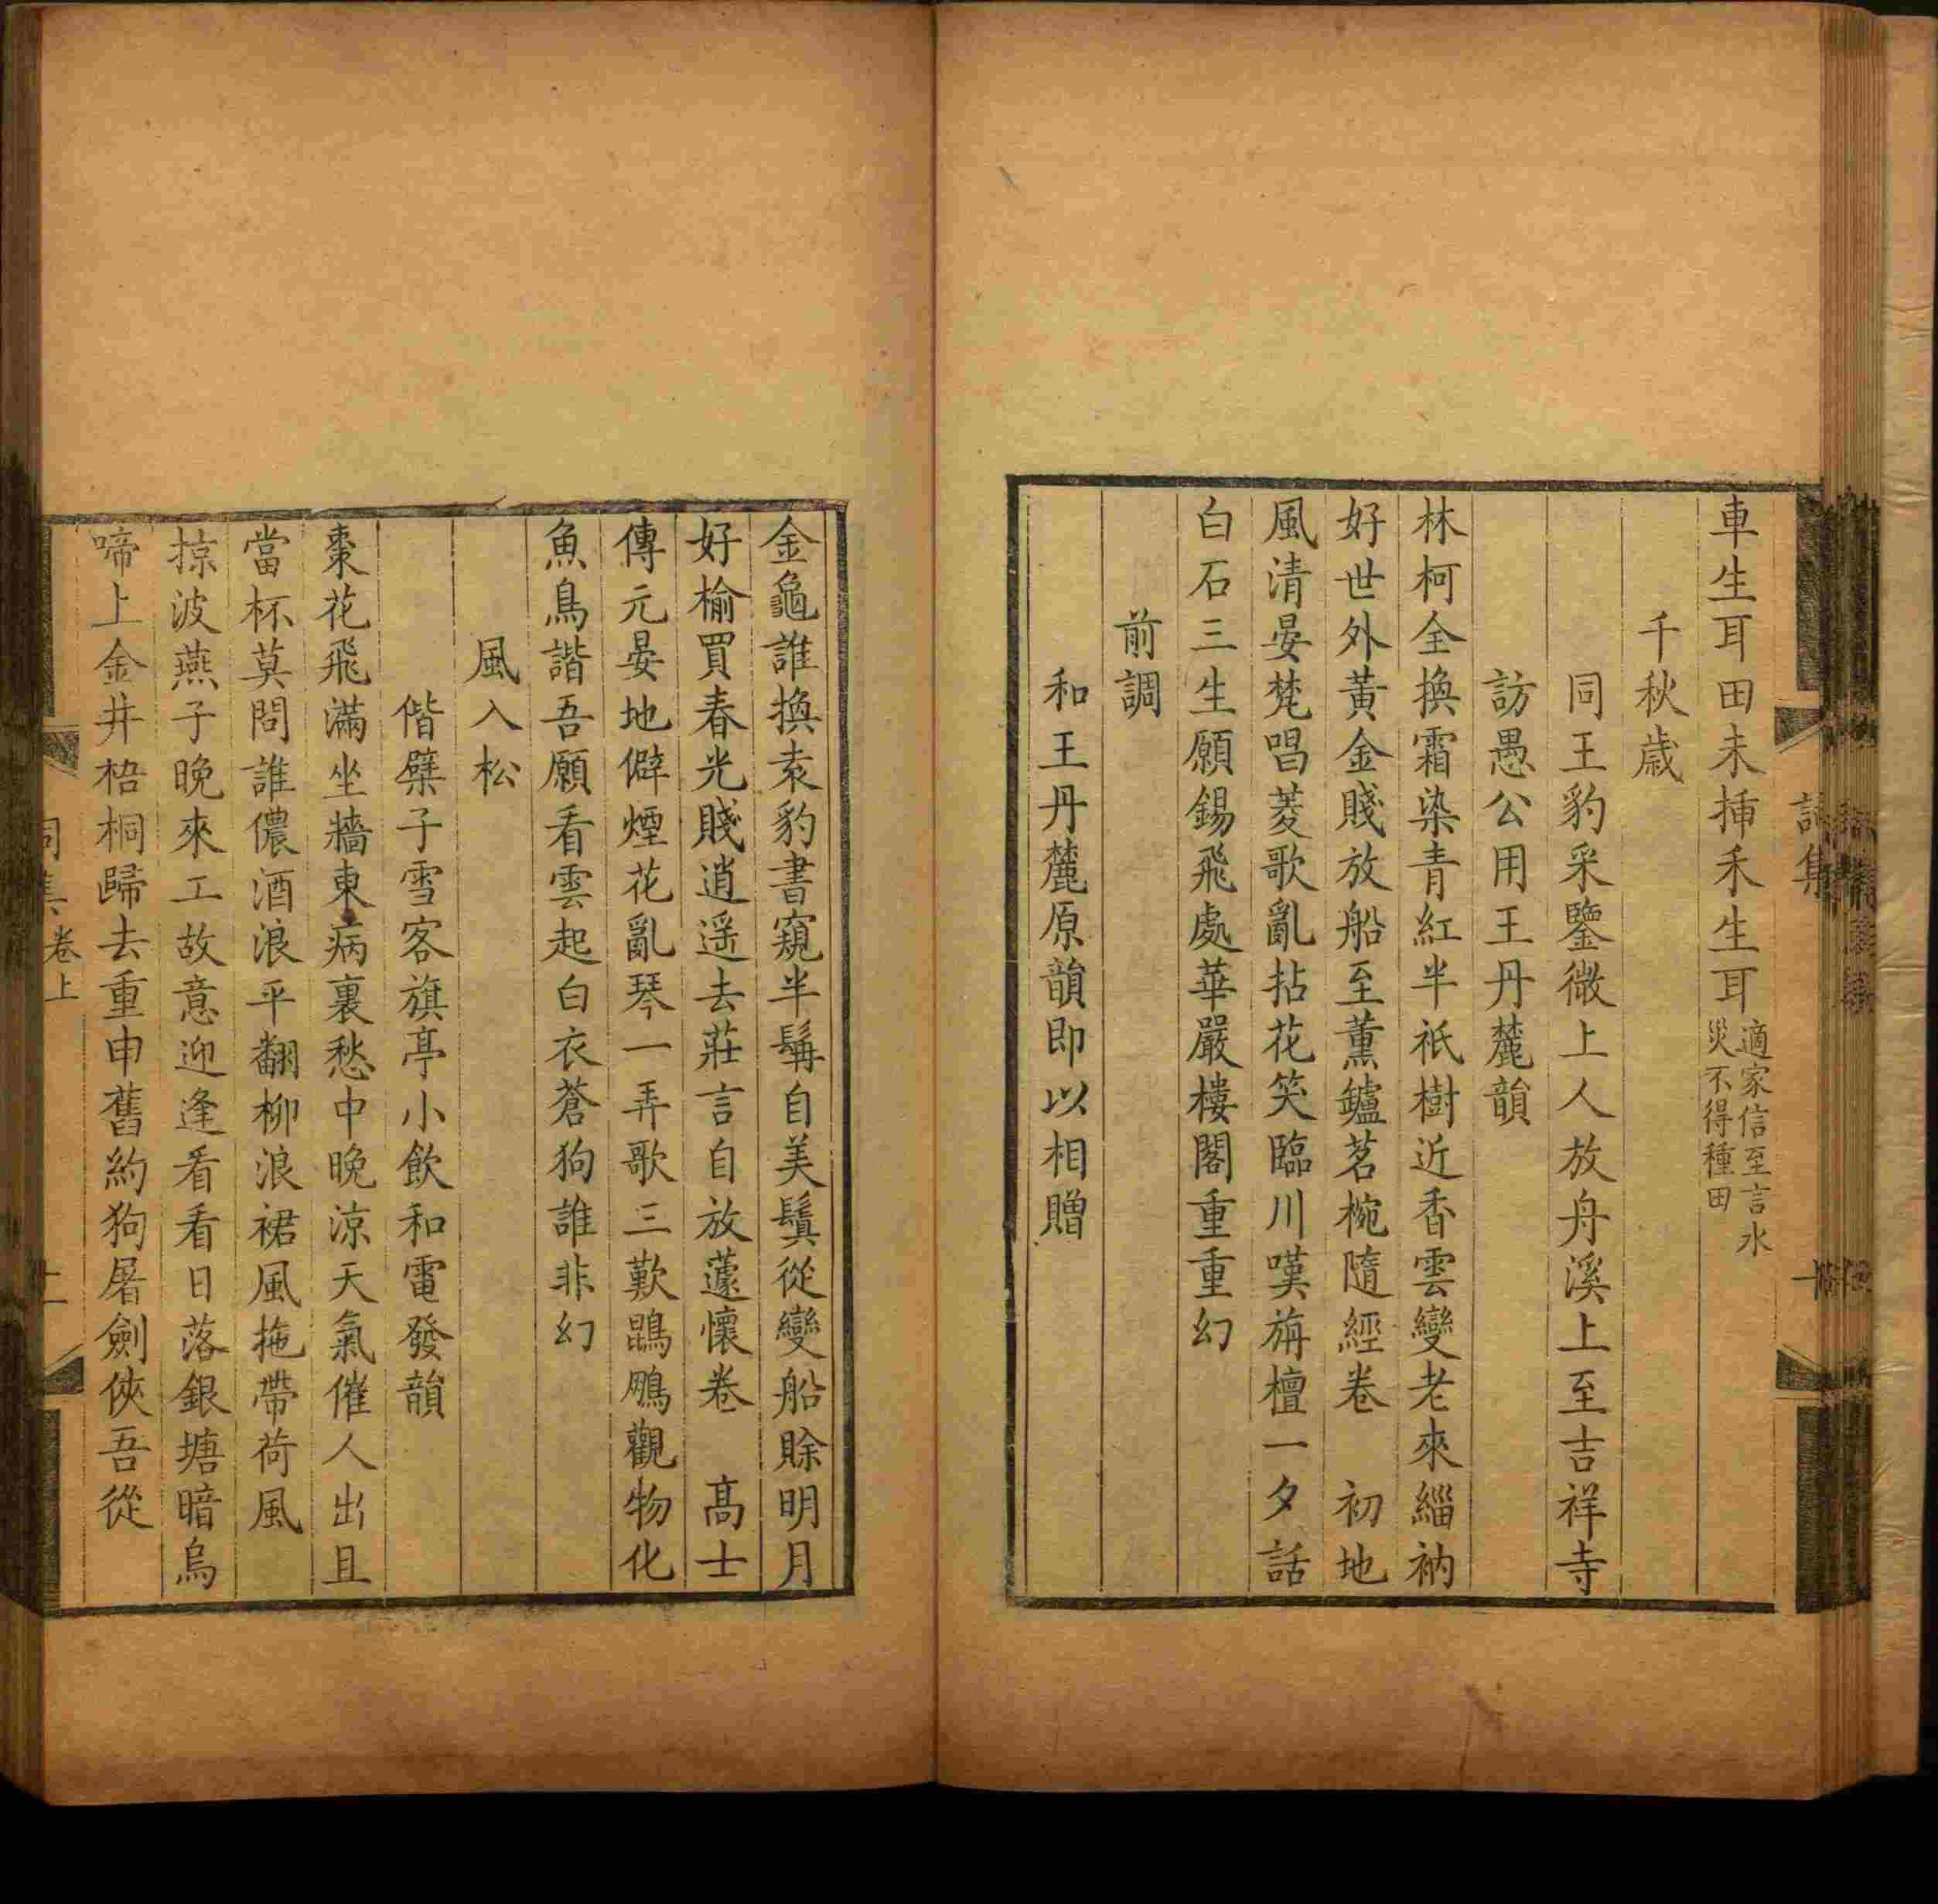 車生耳田未揷禾生耳適家信至言水災不得種田
千秋歳
同王豹采鑒微上人放舟溪上至吉祥寺
訪愚公用王丹麓韻
林柯全換霜染青紅半祇樹近香雲變老來緇衲
好世外黃金賤放船至薰鑪茗椀隨經卷　初地
風清晏梵唱菱歌亂拈花笑臨川嘆旃檀一夕話
白石三生願錫飛處華嚴樓閣重重幻
前調
和王丹麓原韻即以相贈
金龜誰換袁豹書窺半鬚自美鬒從變船賒明月
好榆買春光賤逍遥去莊言自放蘧懷卷　髙士
傳元晏地僻煙花亂琴一弄歌三歎鵾鵬觀物化
魚鳥諧吾願看雲起白衣蒼狗誰非幻
風入松
偕檗子雪客旗亭小飲和電發韻
棗花飛滿坐牆東病裏愁中晚涼天氣催人出且
當杯莫問誰儂酒浪平翻柳浪裙風拖帶荷風
掠波燕子晚來工故意迎逢看看日落銀塘暗烏
啼上金井梧桐歸去重申舊約狗屠劍俠吾從
卷上